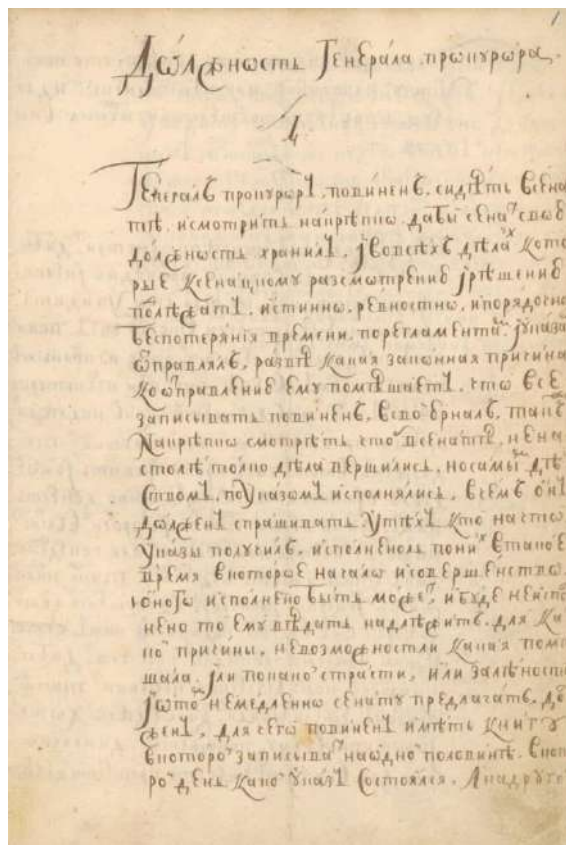 1
Должность Генерала прокурора.
1.
Генералъ прокуроръ. повиненъ. сидѣть всена
тѣ. исмотрить накрѣпко. дабы сена свою
должность хранилъ. івовсѣхъ дѣлах кото
рые ксенацкому разсмотрению ірѣшению
подлѣжатъ. истинно. ревностно. ипорядочно
безпотеряния времени. порегламентам іуказам
отправлялъ. развѣ какая законная причина
коотправлению ему помѣшаетъ. что все
записывать повиненъ. всвой юрналъ. такъ
накрѣпко смотрѣть. чтоб всенатѣ. нена
столѣ толко дѣла вершились. носамым дѣ
ствомъ. поуказомъ исполнялись. вчемъ онъ
долженъ спрашивать утѣхъ кто начто
указы получилъ. исполненоль поних втакое
время вкоторое начало исовершенство
оного исполнено быть може. ибуде неиспо
нено то ему вѣдать надлѣжитъ. для ка
кой причины. невозможностли какая поме
шала. іли покакой страсти, или залѣность
іотом немедленно сенату предлагать. до
женъ. для сего повиненъ имѣть книгу
вкоторой записыва наодной половинѣ. вкото
рой день какой указъ состоялся. Анадругой